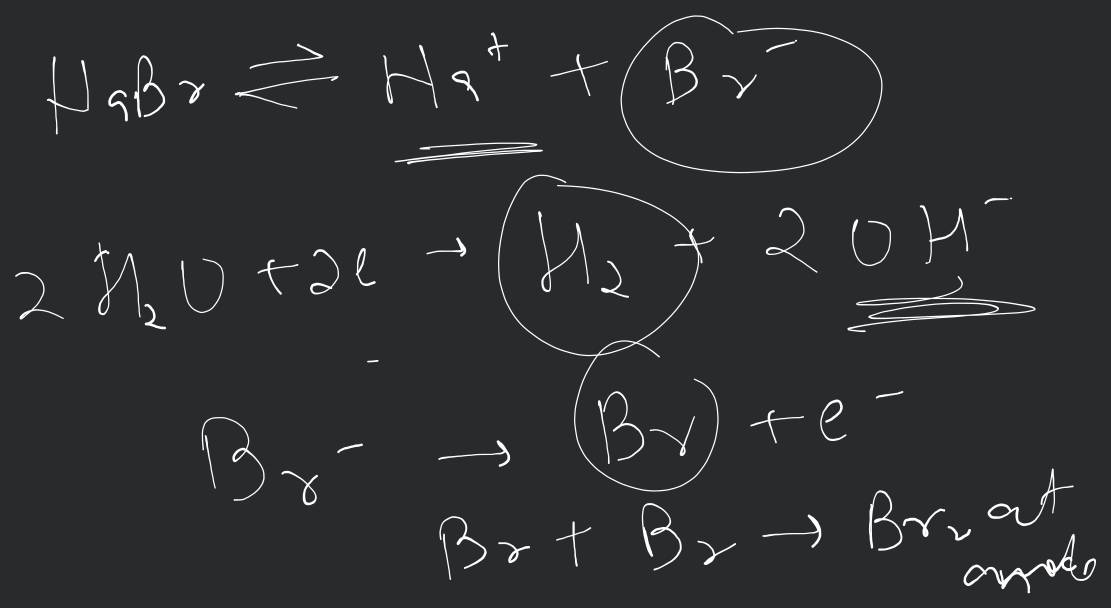 NaBr ⇌ Na⁺ + Br⁻
2 H₂O + 2e → H₂ + 2 OH⁻
Br⁻ → Br + e⁻
Br + Br → Br₂ at
anode